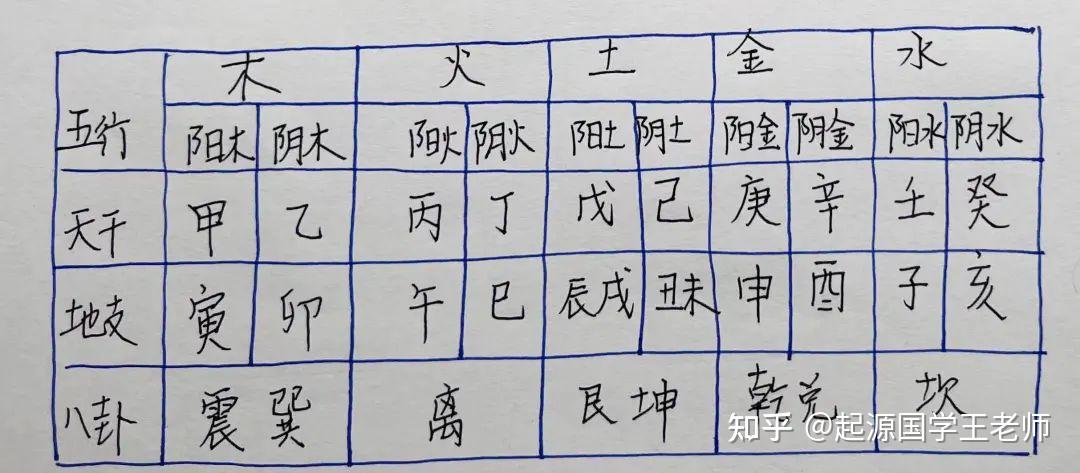 木 火 土 金 水
五行 阳木 阴木 阳火 阴火 阳土 阴土 阳金 阴金 阳水 阴水
天干 甲 乙 丙 丁 戊 己 庚 辛 壬 癸
地支 寅 卯 午 巳 辰戌 丑未 申 酉 子 亥
八卦 震 巽 离 艮 坤 乾 兑 坎
知乎 @起源国学王老师